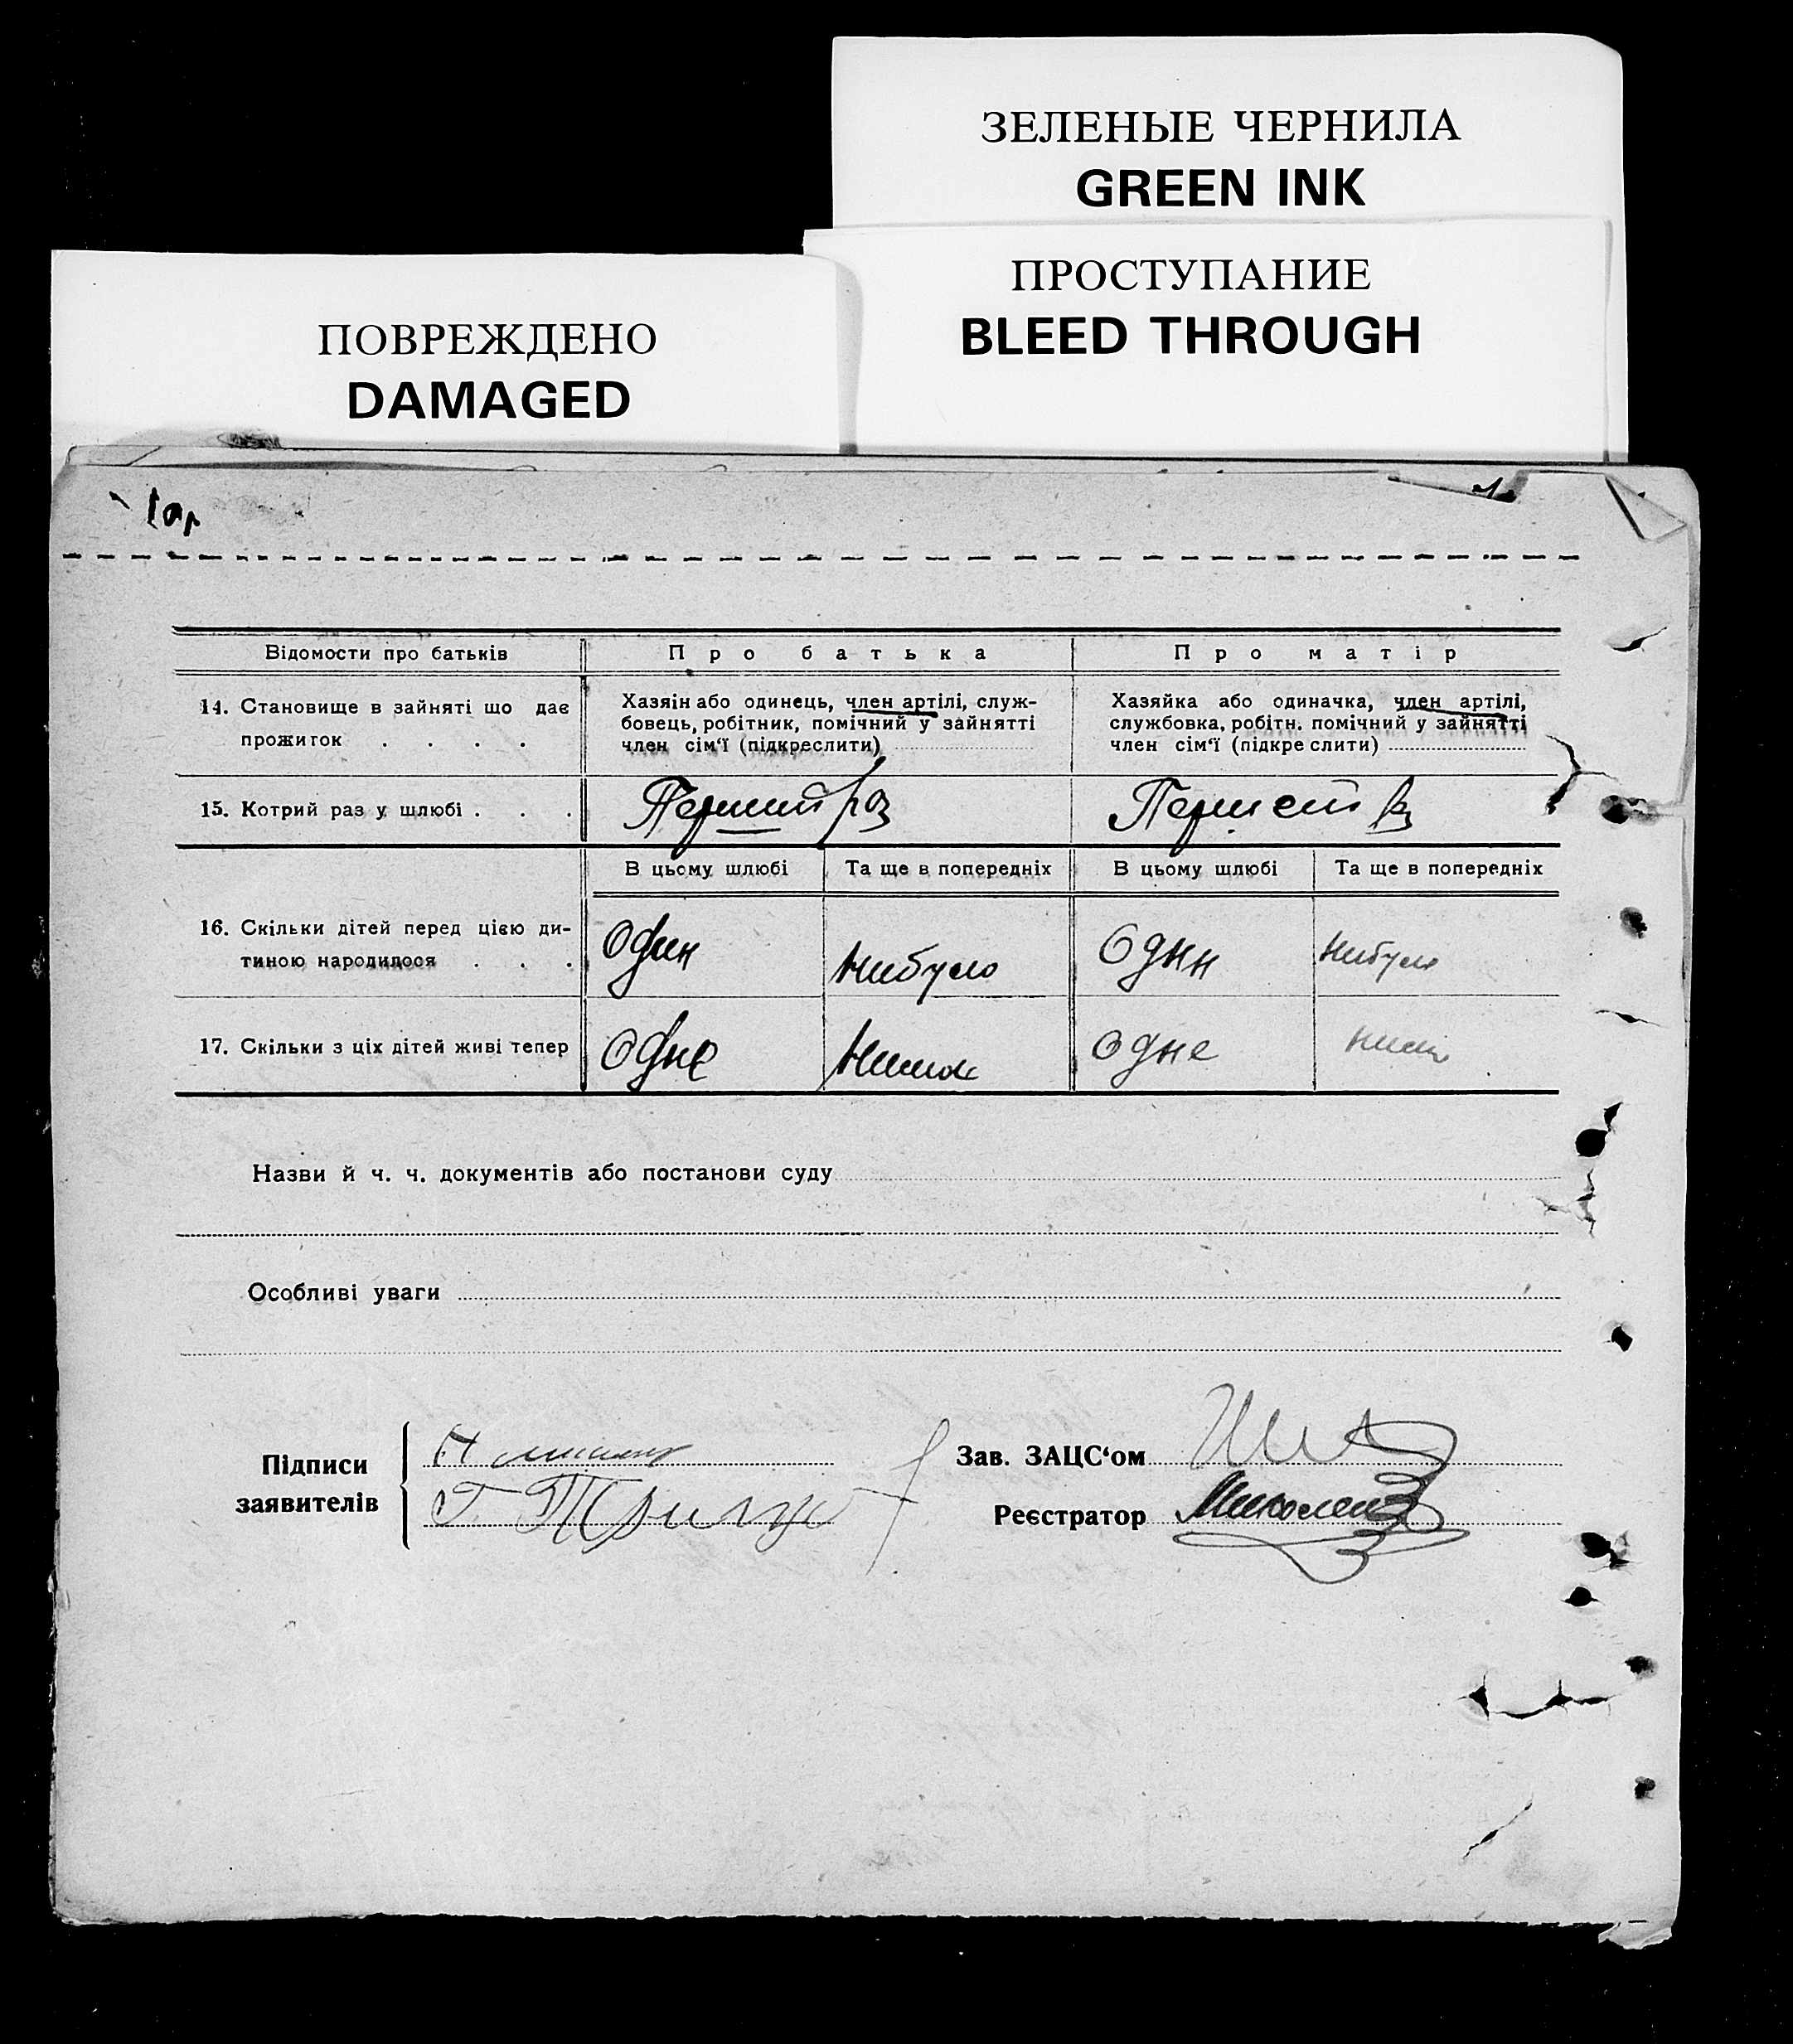 ЗЕЛЕНЫЕ ЧЕРНИЛА
GREEN INK
ПРОСТУПАНИЕ
BLEED THROUGH
ПОВРЕЖДЕНО
DAMAGED
Відомости про батьків
Про батька
Про матір
14. Становище в зайняті що дає
прожиток . . . .
Хазяін або одинець, член артілі, служ-
бовець, робітник, помічний у зайнятті
член сім‘ї (підкреслити)
Хазяйка або одиначка, член артілі,
службовка, робітн. помічний у зайнятті
член сім‘ї (підкреслити)
15. Котрий раз у шлюбі . . .
Перший раз
Перший раз
В цьому шлюбі
Та ще в попередніх
В цьому шлюбі
Та ще в попередніх
16. Скільки дітей перед цією ди-
тиною народилося . . .
Один
Небуло
Один
Небуло
17. Скільки з ціх дітей живі тепер
Одне
Одне
Назви й ч. ч. документів або постанови суду
Особливі уваги
Підписи
заявителів
Зав. ЗАЦС‘ом
Реєстратор